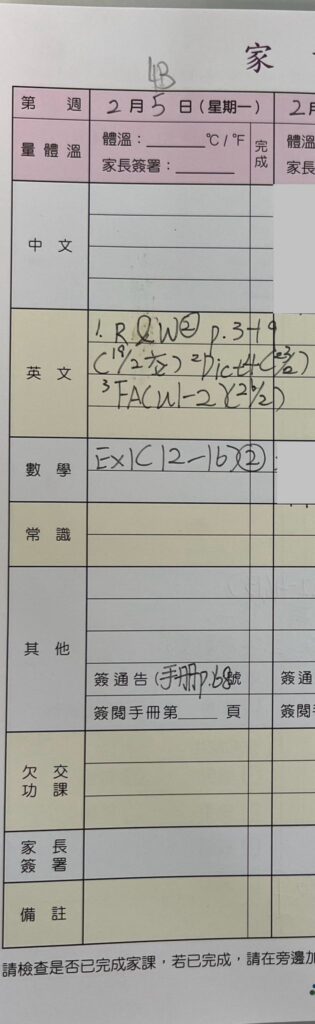 家
4B
第 週 2月5日(星期一) 2月
量體溫 體溫：______°C/°F 完成 體溫
家長簽署：______ 家長
中文
英文 1. R&W② p.3-19
(19/2交) ²Dict4(23/2)
³FA(U1-2)(26/2)
數學 Ex1C 12-16)②
常識
其他
簽通告(手冊p.68號 簽通
簽閱手冊第____頁 簽閱
欠交功課
家長簽署
備註
請檢查是否已完成家課，若已完成，請在旁邊加